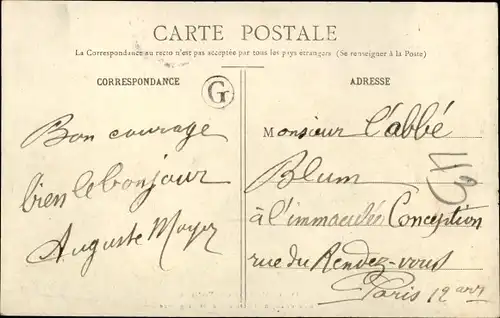 CARTE POSTALE
La Correspondance au recto n'est pas acceptée par tous les pays étrangers (Se renseigner à la Poste)
CORRESPONDANCE
G
Bon courage
bien le bonjour
Auguste
ADRESSE
Monsieur l'abbé
Blum
à l'immaculée Conception
rue du Rendez-vous
Paris 12
43